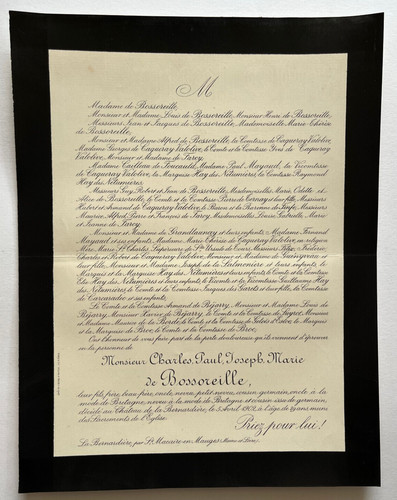 M
Madame de Bossoreille,
Monsieur et Madame Louis de Bossoreille, Monsieur Henri de Bossoreille,
Messieurs Jean et Jacques de Bossoreille, Mademoiselle Marie-Thérèse
de Bossoreille,
Monsieur et Madame Alfred de Bossoreille, la Comtesse de Caqueray Valolive,
Madame Georges de Caqueray Valolive, le Comte et la Comtesse René de Caqueray
Valolive, Monsieur et Madame de Farcy,
Madame Cailleau de Foucault, Madame Paul Mayaud, la Vicomtesse
de Caqueray Valolive, la Marquise Hay des Nétumières, la Comtesse Raymond
Hay des Nétumières,
Messieurs Guy, Robert et Jean de Bossoreille, Mesdemoiselles Marie, Odette et
de Bossoreille, le Comte et la Comtesse et leur fille, Messieurs
Robert et Armand de Caqueray Valolive, le Baron et la Baronne de Messieurs
Maurice, Alfred, Pierre et François de Farcy, Mesdemoiselles Louise, Gabrielle, Marie
et Jeanne de Farcy,
Monsieur et Madame de Grandlaunay et leurs enfants, Madame Fernand
Mayaud et ses enfants, Madame Marie-Thérèse de Caqueray Valolive, en religion
Mère Marie St Charles, Supérieure de Ste Ursule de Tours, Messieurs
Charles et Robert de Caqueray Valolive, Monsieur et Madame de et
leur fille, Monsieur et Madame Joseph de la et leurs enfants, le
Marquis et la Marquise Hay des Nétumières et leurs enfants, le Comte et la Comtesse
Elie Hay des Nétumières et leurs enfants, le Vicomte et la Vicomtesse Hay
des Nétumières, le Comte et la Comtesse Jacques des et leur fille, la Comtesse
de Carcaradec et ses enfants,
Le Comte et la Comtesse Armand de Béjarry, Monsieur et Madame Louis de
Béjarry, Monsieur Xavier de Béjarry, le Comte et la Comtesse de Monsieur
et Madame Maurice de la Borde, le Comte et la Comtesse de le Marquis
et la Marquise de Broc, le Comte et la Comtesse de Broc,
Ont l'honneur de vous faire part de la perte douloureuse qu'ils viennent d'éprouver
en la personne de
Monsieur Charles, Paul, Joseph, Marie
de Bossoreille,
leur fils, frère, beau-frère, oncle, neveu, petit-neveu, cousin-germain, oncle à la
mode de Bretagne, neveu à la mode de Bretagne et cousin issu de germain,
décédé au Château de la Bernardière, le 5 Avril 1902, à l'âge de 29 ans, muni
des Sacrements de l'Église.
Priez pour lui!
La Bernardière, par St Macaire-en-Mauges, Maine-et-Loire.